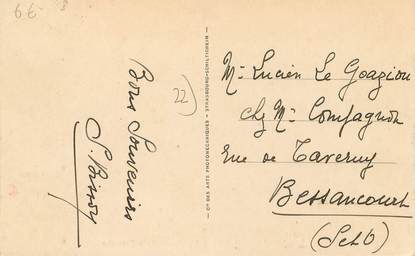 22)
Bons Souvenirs
S. Bisson
Cie DES ARTS PHOTOMÉCANIQUES - STRASBOURG-SCHILTIGHEIM
Mr Lucien Le Goaziou
chez Mr Compagnon
Rue de Taverny
Bessancourt
(S et O)